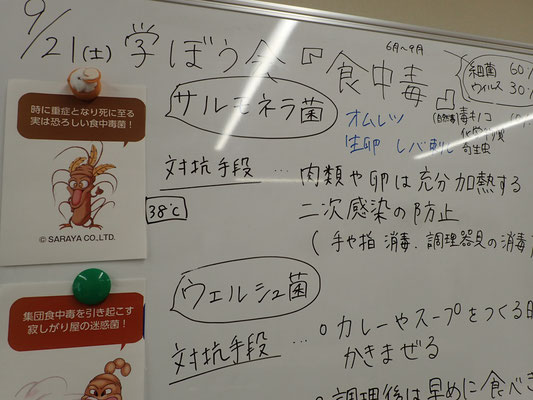 9/21(土) 学ぼう会『食中毒』
6月~9月
細菌 60%
ウイルス 30%
時に重症となり死に至る
実は恐ろしい食中毒菌!
© SARAYA CO.,LTD.
サルモネラ菌
オムレツ
生卵 レバ刺し
(自然毒)毒キノコ
寄生虫
対抗手段 … 肉類や卵は充分加熱する
38℃
二次感染の防止
(手や指 消毒、調理器具の消毒
ウェルシュ菌
対抗手段 … ○カレーやスープをつくる
かきまぜる
○調理後は早めに食べ
集団食中毒を引き起こす
寂しがり屋の迷惑菌!